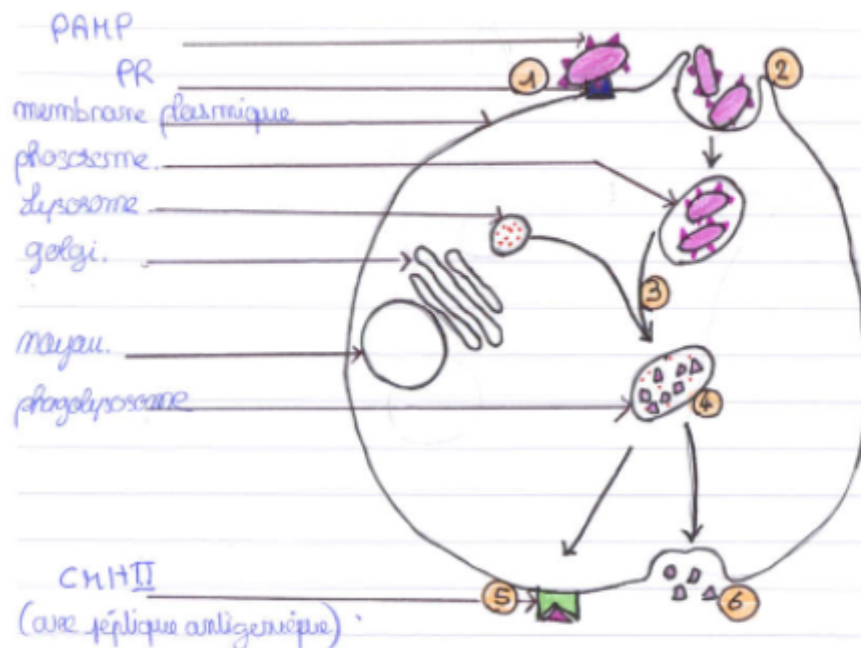 PAMP
1
2
PR
membrane plasmique
phososome
Lysosome
golgi.
3
noyau.
phagolysosome
4
CMH II
5
6
(avec péptique antigenique)